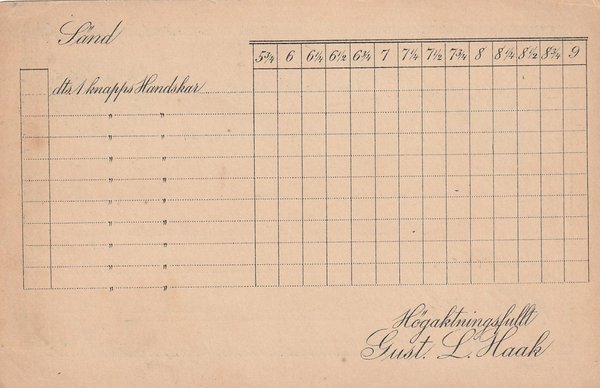 Sänd
5¾ 6 6¼ 6½ 6¾ 7 7¼ 7½ 7¾ 8 8¼ 8½ 8¾ 9
dts 1 knapps Handskar
„ „
„ „
„ „
„ „
„ „
„ „
„ „
„ „
„ „
Högaktningsfullt
Gust. L. Haak